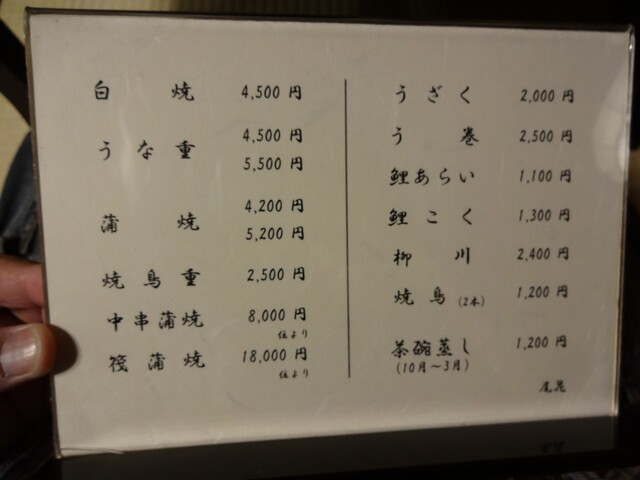 白焼 4,500 円
うな重 4,500 円
5,500 円
蒲焼 4,200 円
5,200 円
焼鳥重 2,500 円
中串蒲焼 8,000 円
位より
筏蒲焼 18,000 円
位より
うざく 2,000 円
う巻 2,500 円
鯉あらい 1,100 円
鯉こく 1,300 円
柳川 2,400 円
焼鳥(2本) 1,200 円
茶碗蒸し 1,200 円
(10月〜3月)
尾花